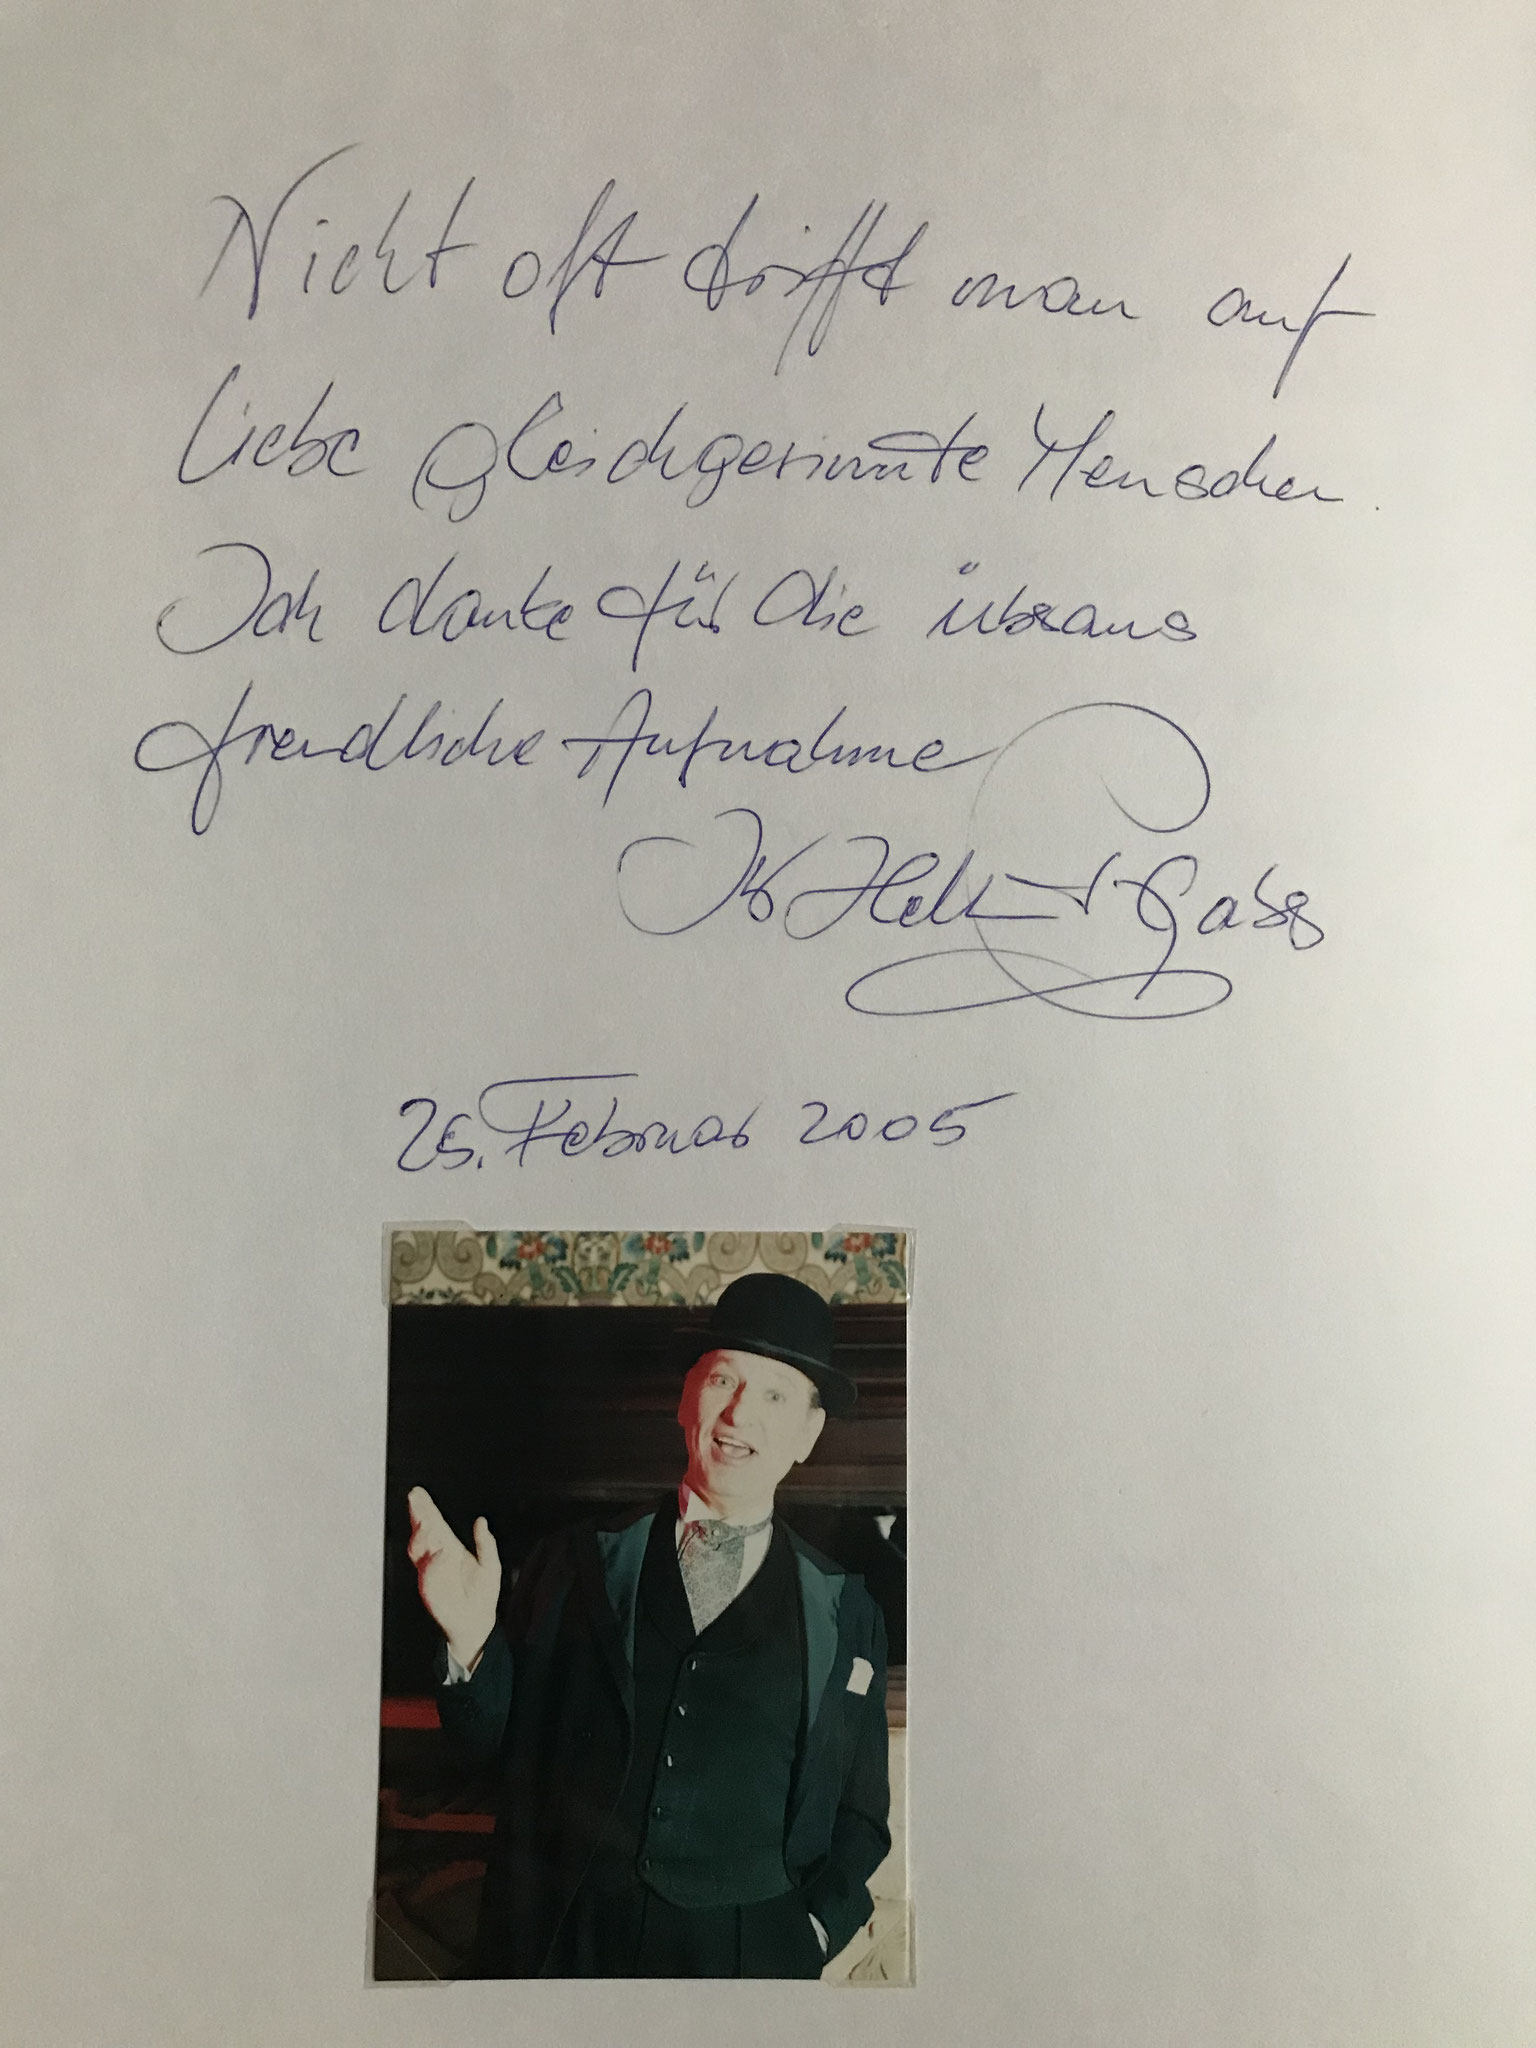 Nicht oft trifft man auf
liebe gleichgesinnte Menschen.
Ich danke für die überaus
freundliche Aufnahme
Ihr
25. Februar 2005